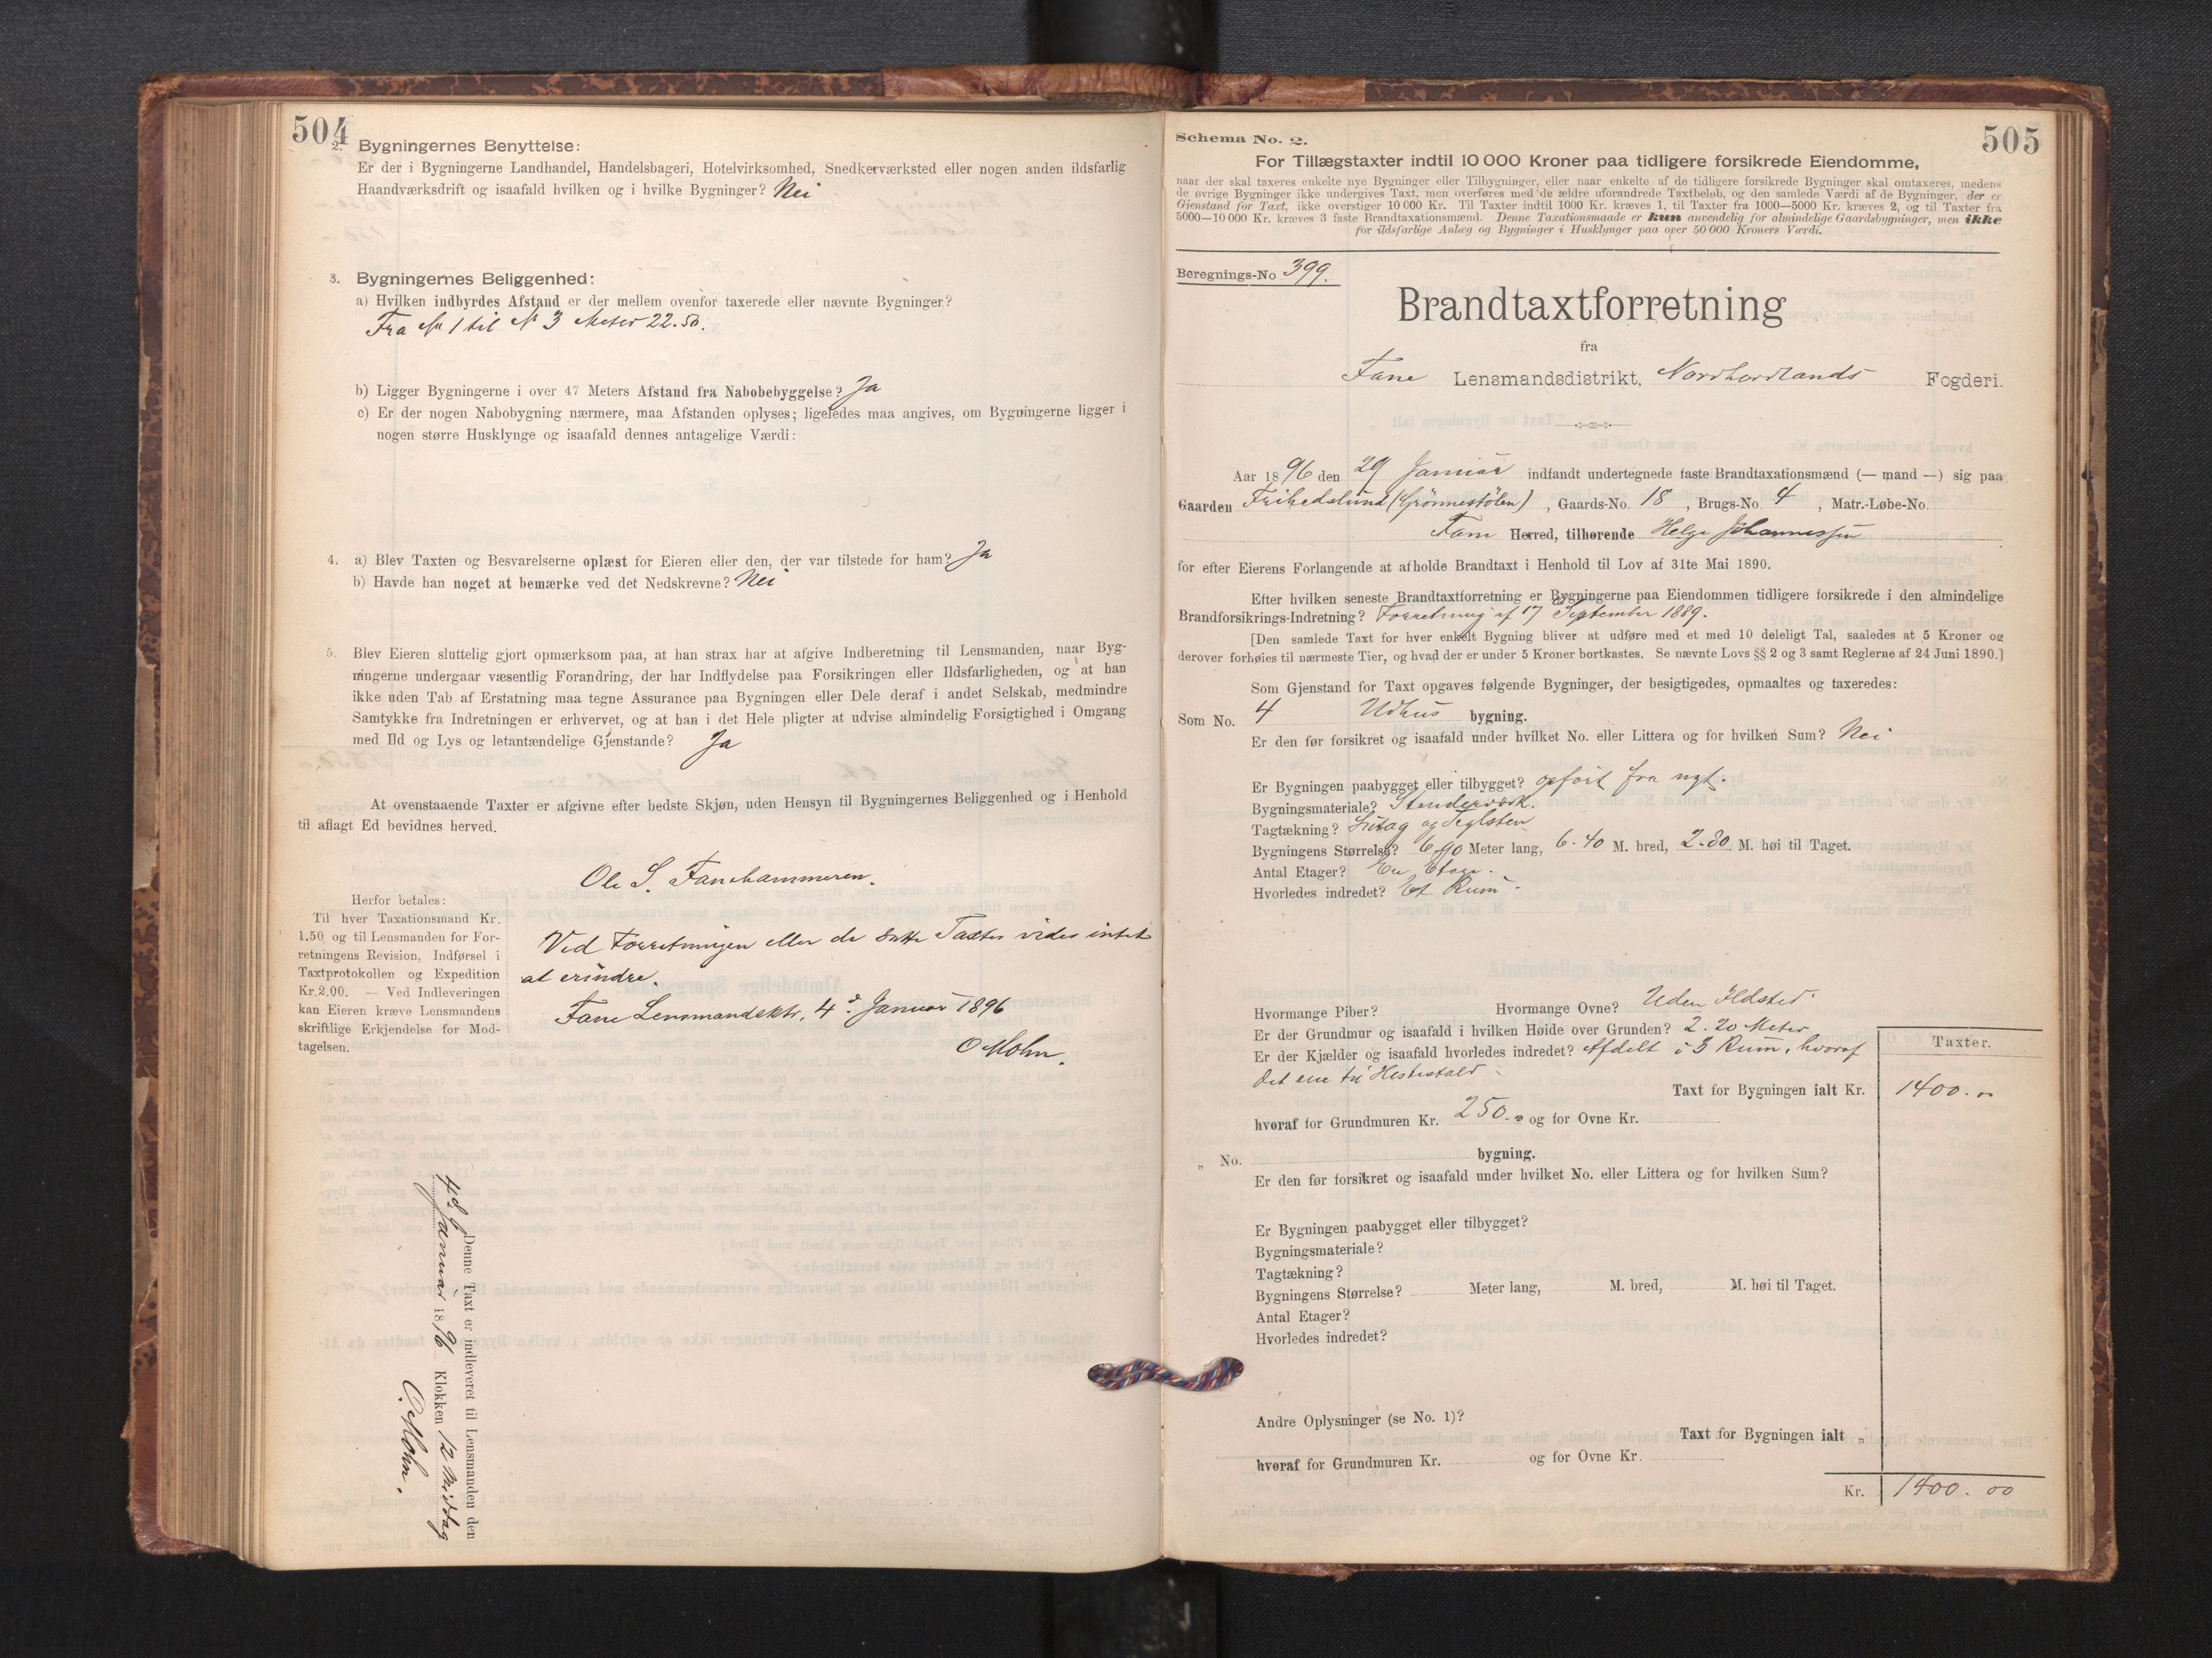 504
2. Bygningernes Benyttelse:
Er der i Bygningerne Landhandel, Handelsbageri, Hotelvirksomhed, Snedkerværksted eller nogen anden ildsfarlig
Haandværksdrift og isaafald hvilken og i hvilke Bygninger? Nei
3. Bygningernes Beliggenhed:
a) Hvilken indbyrdes Afstand er der mellem ovenfor taxerede eller nævnte Bygninger?
Fra No 1 til No 3 Meter 22.50.
b) Ligger Bygningerne i over 47 Meters Afstand fra Nabobebyggelse? Ja
c) Er der nogen Nabobygning nærmere, maa Afstanden oplyses; ligeledes maa angives, om Bygningerne ligger i
nogen større Husklynge og isaafald dennes antagelige Værdi:
4. a) Blev Taxten og Besvarelserne oplæst for Eieren eller den, der var tilstede for ham? Ja
b) Havde han noget at bemærke ved det Nedskrevne? Nei
5. Blev Eieren sluttelig gjort opmærksom paa, at han strax har at afgive Indberetning til Lensmanden, naar Byg-
ningerne undergaar væsentlig Forandring, der har Indflydelse paa Forsikringen eller Ildsfarligheden, og at han
ikke uden Tab af Erstatning maa tegne Assurance paa Bygningen eller Dele deraf i andet Selskab, medmindre
Samtykke fra Indretningen er erhvervet, og at han i det Hele pligter at udvise almindelig Forsigtighed i Omgang
med Ild og Lys og letantændelige Gjenstande? Ja
At ovenstaaende Taxter er afgivne efter bedste Skjøn, uden Hensyn til Bygningernes Beliggenhed og i Henhold
til aflagt Ed bevidnes herved.
Ole S. Fanehammeren.
Herfor betales:
Til hver Taxationsmand Kr.
1.50 og til Lensmanden for For-
retningens Revision, Indførsel i
Taxtprotokollen og Expedition
Kr. 2.00. — Ved Indleveringen
kan Eieren kræve Lensmandens
skriftlige Erkjendelse for Mod-
tagelsen.
Ved Forretningen eller de satte Taxter vides intet
at erindre.
Fane Lensmandsktr, 4de Januar 1896
O Mohn.
Denne Taxt er indleveret til Lensmanden den
4de Januar 1896 Klokken 12 Middag
O. Mohn.
505
Schema No. 2.
For Tillægstaxter indtil 10 000 Kroner paa tidligere forsikrede Eiendomme,
naar der skal taxeres enkelte nye Bygninger eller Tilbygninger, eller naar enkelte af de tidligere forsikrede Bygninger skal omtaxeres, medens
de øvrige Bygninger ikke undergives Taxt, men overføres med de ældre uforandrede Taxtbeløb, og den samlede Værdi af de Bygninger, der er
Gjenstand for Taxt, ikke overstiger 10 000 Kr. Til Taxter indtil 1000 Kr. kræves 1, til Taxter fra 1000—5000 Kr. kræves 2, og til Taxter fra
5000—10 000 Kr. kræves 3 faste Brandtaxationsmænd. Denne Taxationsmaade er kun anvendelig for almindelige Gaardsbygninger, men ikke
for ildsfarlige Anlæg og Bygninger i Husklynger paa over 50 000 Kroners Værdi.
Beregnings-No 399.
Brandtaxtforretning
fra
Fane Lensmandsdistrikt, Nordhordlands Fogderi.
Aar 1896 den 29 Januar indfandt undertegnede faste Brandtaxationsmænd (— mand —) sig paa
Gaarden Frihedslund (Grönnestölen), Gaards-No. 18, Brugs-No. 4, Matr.-Løbe-No.
Fane Herred, tilhørende Helge Johannessen
for efter Eierens Forlangende at afholde Brandtaxt i Henhold til Lov af 31te Mai 1890.
Efter hvilken seneste Brandtaxtforretning er Bygningerne paa Eiendommen tidligere forsikrede i den almindelige
Brandforsikrings-Indretning? Forretning af 17 September 1889.
[Den samlede Taxt for hver enkelt Bygning bliver at udføre med et med 10 deleligt Tal, saaledes at 5 Kroner og
derover forhøies til nærmeste Tier, og hvad der er under 5 Kroner bortkastes. Se nævnte Lovs §§ 2 og 3 samt Reglerne af 24 Juni 1890.]
Som Gjenstand for Taxt opgaves følgende Bygninger, der besigtigedes, opmaaltes og taxeredes:
Som No. 4 Udhus bygning.
Er den før forsikret og isaafald under hvilket No. eller Littera og for hvilken Sum? Nei
Er Bygningen paabygget eller tilbygget? opført fra nyt.
Bygningsmateriale? Stenderværk.
Tagtækning? Sutag og Teglsten
Bygningens Størrelse? Meter lang, 6.40 M. bred, 2.80 M. høi til Taget.
Antal Etager? En Etage.
Hvorledes indredet? Et Rum.
Hvormange Piber? Hvormange Ovne? Uden Ildsted.
Er der Grundmur og isaafald i hvilken Høide over Grunden? 2.20 Meter
Er der Kjælder og isaafald hvorledes indredet? Afdelt i 3 Rum, hvoraf
det ene til Hestestald.
Taxter.
Taxt for Bygningen ialt Kr. 1400.00
hvoraf for Grundmuren Kr. 250.00 og for Ovne Kr.
„ No. bygning.
Er den før forsikret og isaafald under hvilket No. eller Littera og for hvilken Sum?
Er Bygningen paabygget eller tilbygget?
Bygningsmateriale?
Tagtækning?
Bygningens Størrelse? Meter lang, M. bred, M. høi til Taget.
Antal Etager?
Hvorledes indredet?
Andre Oplysninger (se No. 1)?
Taxt for Bygningen ialt „
hvoraf for Grundmuren Kr. og for Ovne Kr.
Kr. 1400.00